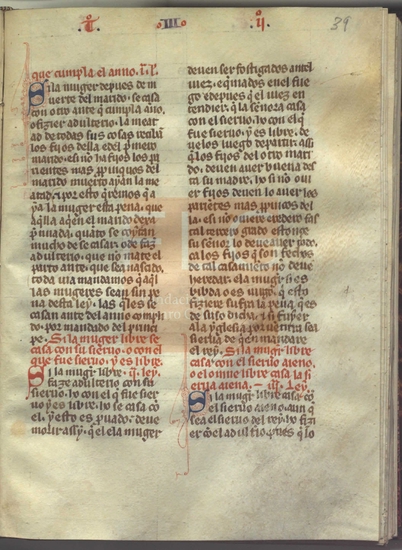 t̊ · III · ij
39
que cumpla el anno. i. l.
Si la muger depues de m
uerte del marido se casa
con otro ante que cumpla año.
o fizier adulterio. la meat
ad de todas sus cosas recibā
los fijos della e del primero
marido. e si no ha fijos los pa
rientes mas propinquos del
marido muerto ayan la me
atad. e por esto queremos que
aya la muger esta pena. que
aquella a quien el marido dexa
prennada. quando se coytan
mucho de se casar o de faz
adulterio. que no mate el
parto ante. que sea nascido.
toda una mandamos que aquel
las mugeres sean sin pe
na desta ley. las que se
casan ante del anno compli
do. por mandado del princi
pe. Si la muger libre se
casa con su sieruo. o con el
que fue sieruo. y es libre.
Si la muger libre. ij. ley.
faze adulterio con su
sieruo. o con el que fue sier
uo y es libre. o se casa cō
el. y esto es prouado. deve
morir assy. que el e la muger
deuen ser fostigados antel
iuez. e quemados en el fue
go e depues que el iuez en
tendier. que la sennora casa
con el sieruo. o con el que
fue sieruo. y es libre. de
ue los luego departir. assi
que los fijos del otro mari
do. deuen auer buena de
ta su madre. o si no oui
er fijos deuen lo auer los
parientes mas propincos del
la. e si no ouiere heredero fas
cal tercero grado estonçe
su sennor. lo deue auer todo.
ca los fijos que son fechos
de tal casamiento no deue
heredar. e la muger si es
bibda o es uirgo. que esto
fiziere sufra la pena. que es
de suso dicha. e si fuyer
a la yglesia por uentura sea
sierua de quien mandare
el rey. Si la muger libre
casar con el sieruo aieno.
o el omne libre casa la si
erua aiena. — iij. ley.
Si la muger libre casa cō
el sieruo aieno. aun que
sea el sieruo del rey. o fizi
er cō el adulterio. pues que lo